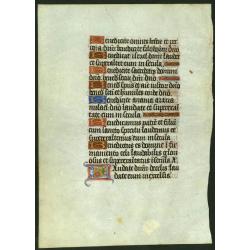 Benedicite omnes bestie et pe
cora dno benedicite filii hominu dno
Benedicat israel dnm laudet
et superexaltet eum in secula
Benedicite sacerdotes domini
dno benedicite servi dni dno
Benedicite sps et aie iustoru dno
benedicite sci et humiles corde dno
Benedicite anania azaria
misael dno laudate et superexal
tate eum in secula
Benedicamus patre et filiu
cum sancto spiritu laudemus et
superexaltemus eum in secula
Benedictus es domine i fir
mamento celi laudabilis et glo
riosus et superexaltatus i secula
Laudate dnm de celis lau
date eum in excelsis